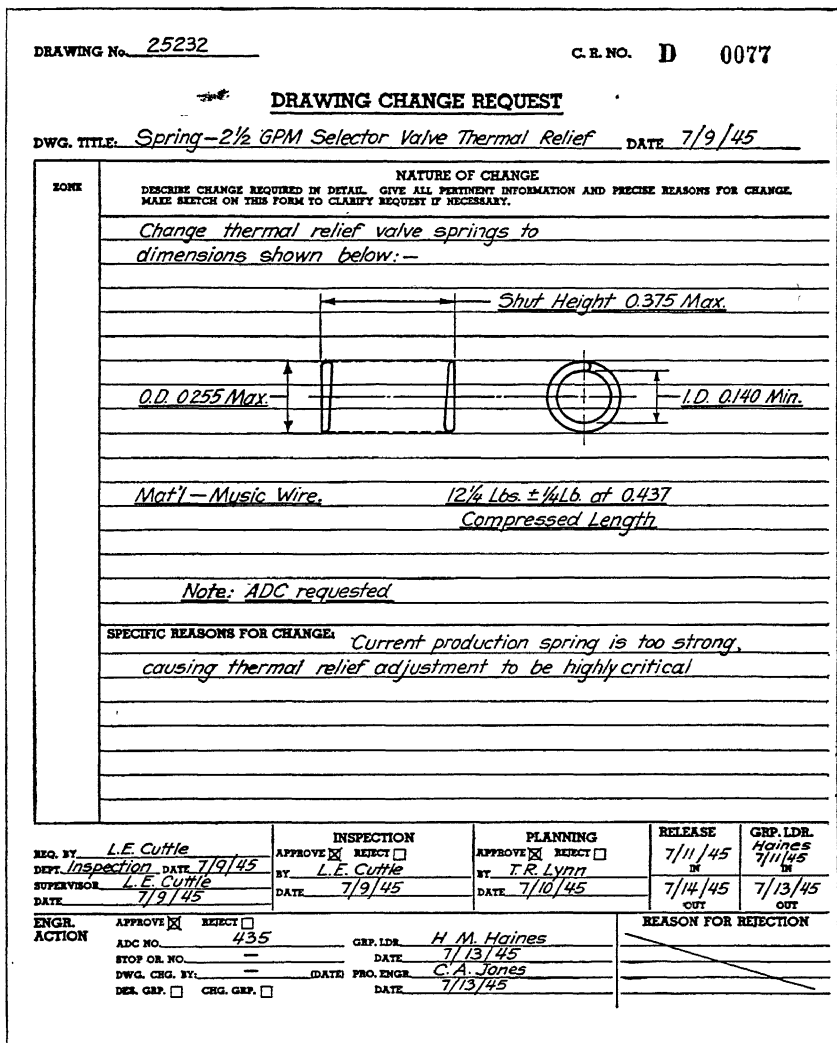 DRAWING No. 25232 C. R. NO. D 0077
DRAWING CHANGE REQUEST
DWG. TITLE: Spring-2½ GPM Selector Valve Thermal Relief DATE 7/9/45
ZONE
NATURE OF CHANGE
DESCRIBE CHANGE REQUIRED IN DETAIL. GIVE ALL PERTINENT INFORMATION AND PRECISE REASONS FOR CHANGE.
MAKE SKETCH ON THIS FORM TO CLARIFY REQUEST IF NECESSARY.
Change thermal relief valve springs to
dimensions shown below:-
Shut Height 0.375 Max.
O.D. 0255 Max. I.D. 0.140 Min.
Mat'l-Music Wire. 12¼ Lbs. ±¼Lb. at 0.437
Compressed Length
Note: ADC requested
SPECIFIC REASONS FOR CHANGE: Current production spring is too strong,
causing thermal relief adjustment to be highly critical
REQ. BY L.E. Cuttle
DEPT. Inspection DATE 7/9/45
SUPERVISOR L.E. Cuttle
DATE 7/9/45
INSPECTION
APPROVE ☒ REJECT ☐
BY L.E. Cuttle
DATE 7/9/45
PLANNING
APPROVE ☒ REJECT ☐
BY T.R. Lynn
DATE 7/10/45
RELEASE
7/11/45
IN
7/14/45
OUT
GRP. LDR.
Haines
7/11/45
IN
7/13/45
OUT
ENGR.
ACTION
APPROVE ☒ REJECT ☐
ADC NO. 435 GRP. LDR. H M. Haines
STOP OR. NO. — DATE 7/13/45
DWG. CHG. BY: — (DATE) PRO. ENGR. C.A. Jones
DES. GRP. ☐ CHG. GRP. ☐ DATE 7/13/45
REASON FOR REJECTION